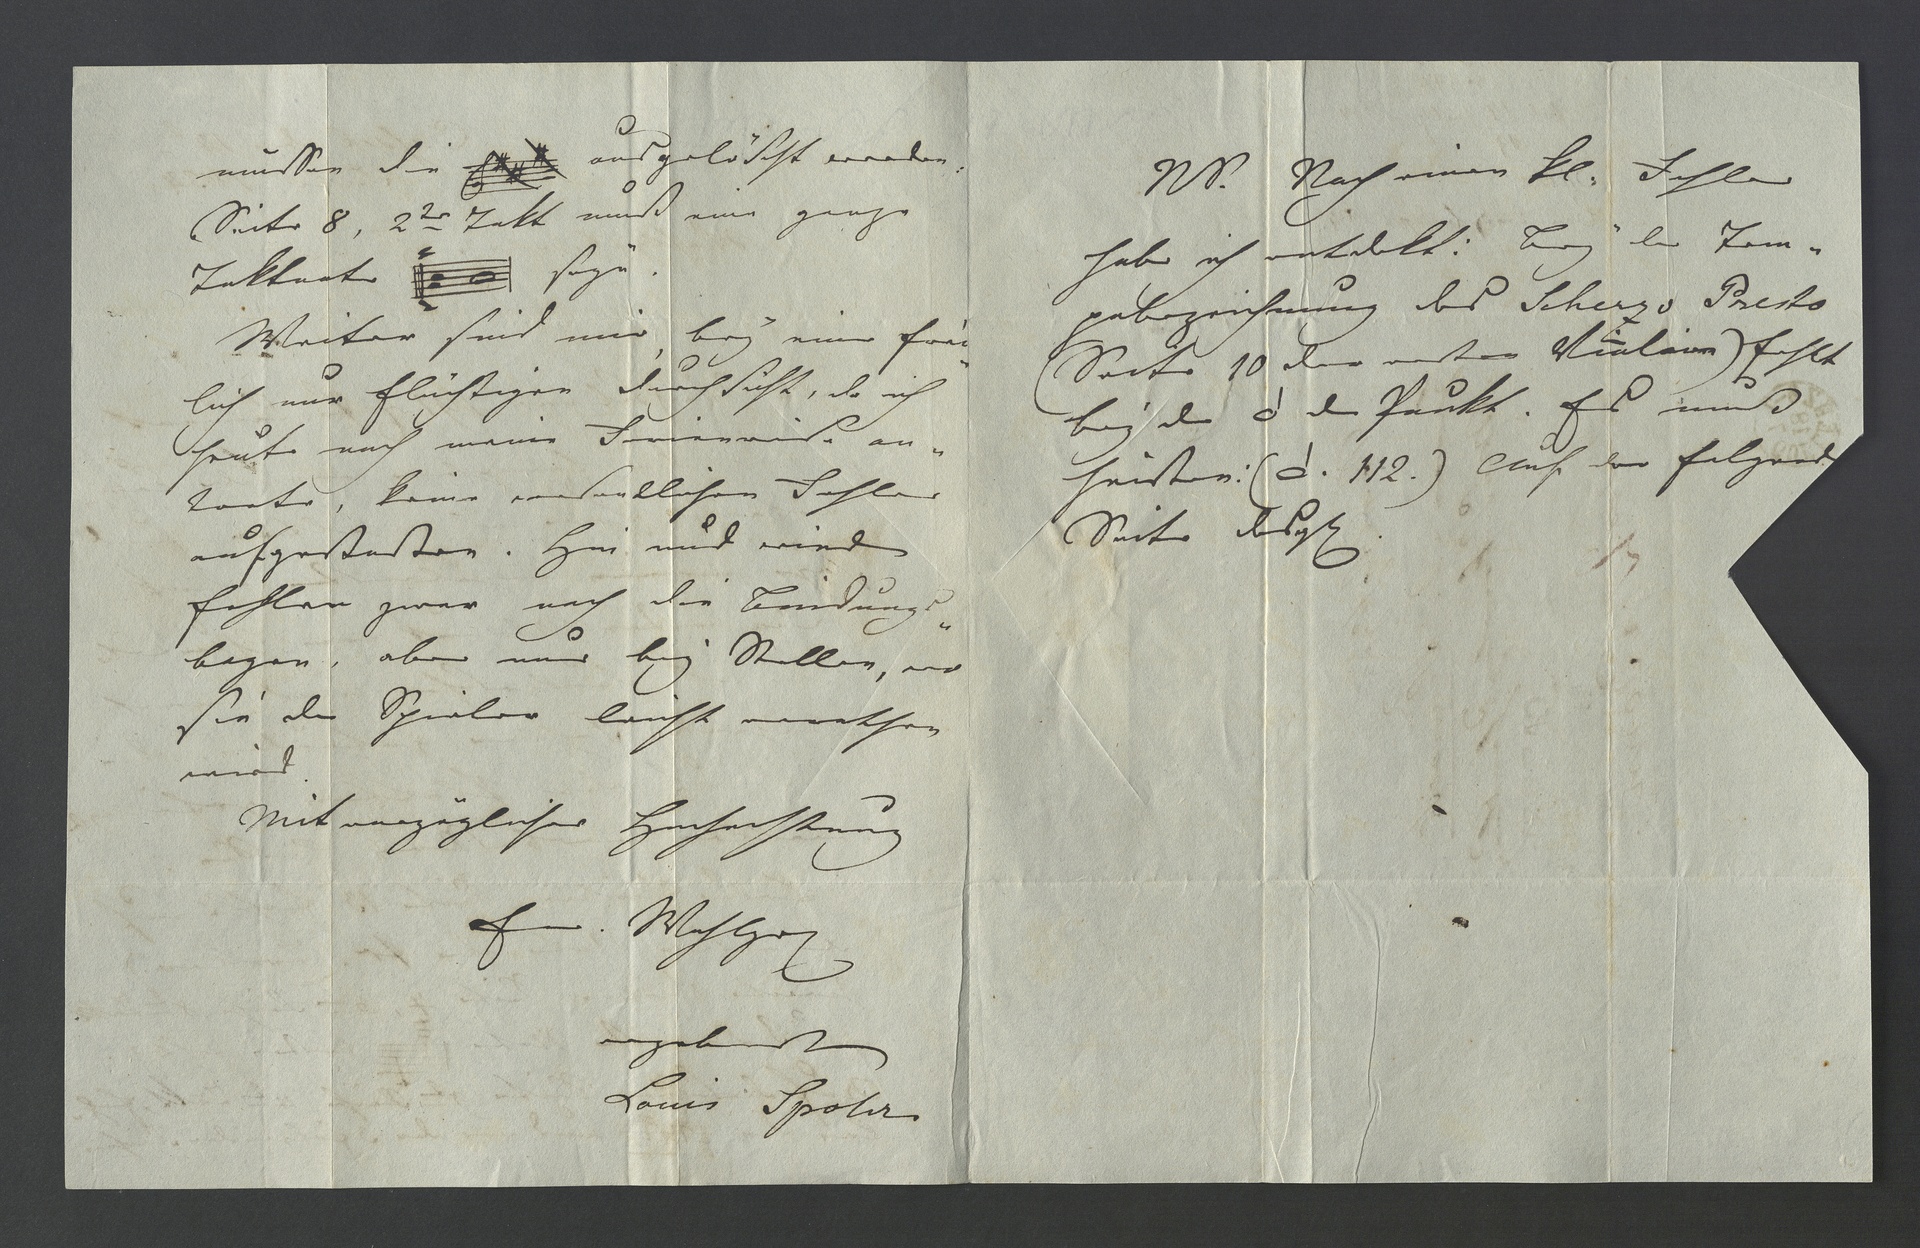 müssen die ausgelöscht werden.
Seite 8, 2te Takt muß eine ganze
Taktnote seyn.
Weiter sind mir, bey einer frei
lich nur flüchtigen Durchsicht, da ich
heute noch meine Ferienreise an-
trete, keine wesentlichen Fehler
aufgestoßen. Hin und wieder
fehlen zwar noch die Bindungs-
bogen, aber nur bey Stellen, wo
sie der Spieler leicht errathen
wird.
Mit vorzüglicher Hochachtung
Ew. Wohlgeb
ergebenster
Louis Spohr
NS. Noch einen kl. Fehler
habe ich entdekt: Bey der Tem-
pobezeichnung des Scherzo Presto
(Seite 10 der ersten Violine) fehlt
bey der 𝅗𝅥 der Punkt. Es muß
heißen: (𝅗𝅥. 112.) Auf der folgenden
Seite desgl.